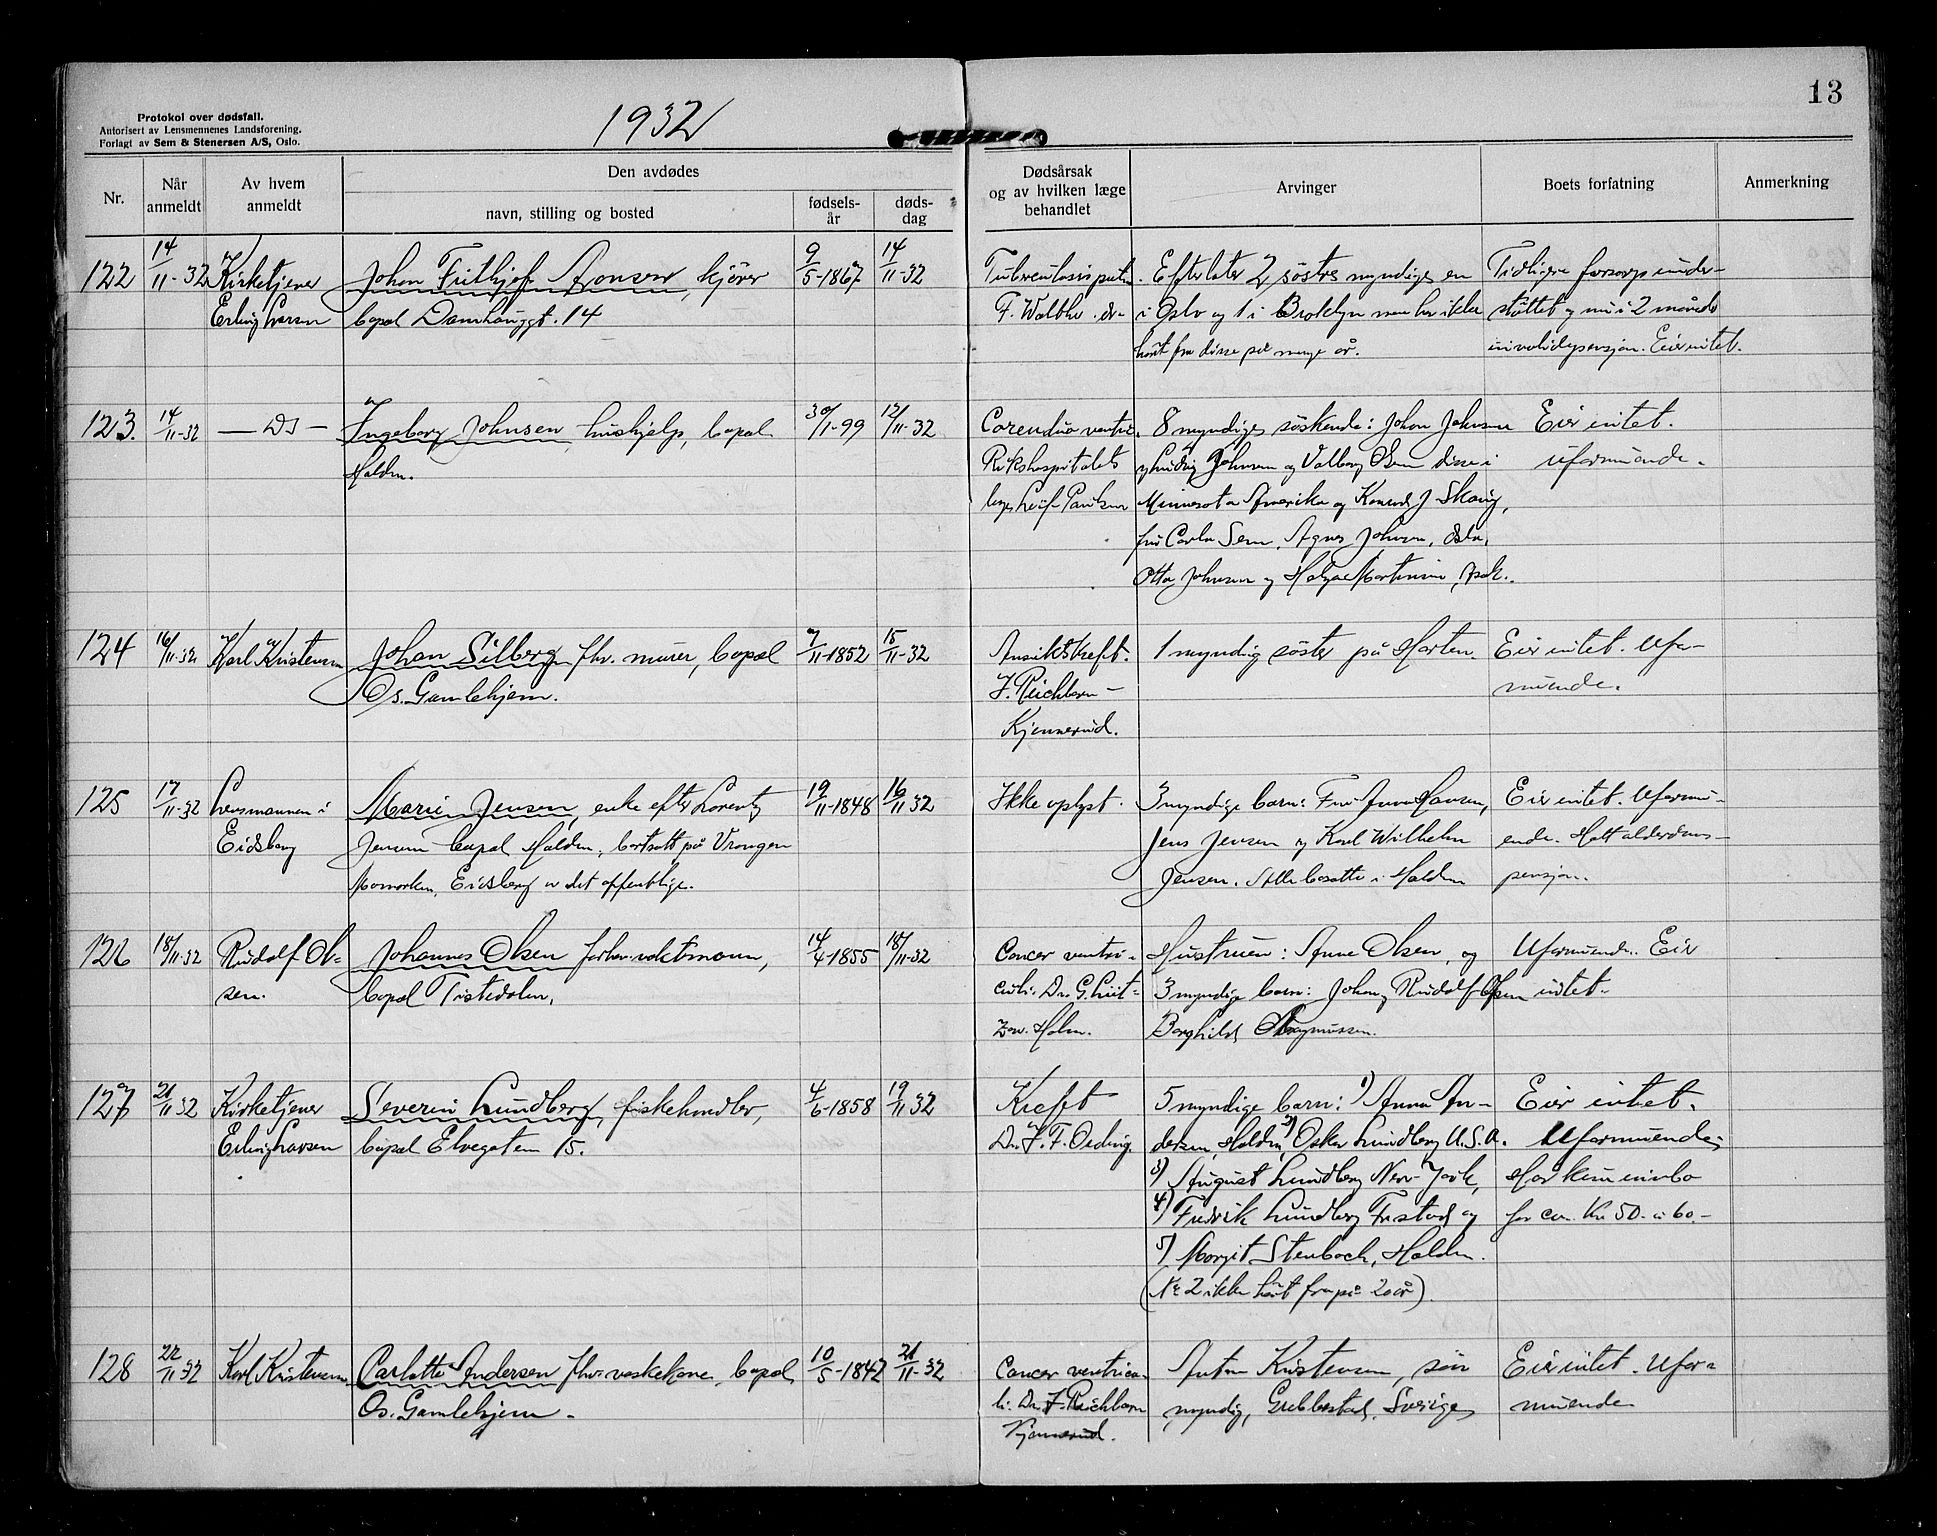 13
Protokol over dødsfall.
Autorisert av Lensmennenes Landsforening.
Forlagt av Sem & Stenersen A/S, Oslo.
1932
Nr.
Når anmeldt
Av hvem anmeldt
Den avdødes
navn, stilling og bosted
fødsels-år
døds-dag
Dødsårsak og av hvilken læge behandlet
Arvinger
Boets forfatning
Anmerkning
122
14/11-32
Kirketjener
Erling Larsen
Johan Frithjof Aronsen, kjører
bopæl Damhauggt. 14
9/5-1867
14/11-32
F. Walther
Efterlater 2 søstre myndige en
i Oslo og 1 i Broklyn men har ikke
hørt fra disse på mange år.
Tidligere forsorgsunder-
støttet og nu i 2 måneder
invalidepensjon. Eier intet.
123.
14/11-32
— Ds —
Ingeborg Johnsen, hushjelp, bopæl
Halden.
30/1-99
12/11-32
Rikshospitalets
læge Leif
8 myndige søskende: Johan Johnsen
Ludvig Johnsen og Valborg Olsen disse i
Minnesota Amerika og Konrad J Skaug,
fru Carla Sem, Agnes Johnsen, Oslo,
Otto Johnsen og Helga Martinsen,
Eier intet.
Uformuende.
124
16/11-32
Karl Kristensen
Johan Silberg fhv. murer, bopæl
Os. Gamlehjem.
7/11-1852
15/11-32
Ansiktskreft.
J. Reichborn-
Kjennerud.
1 myndig søster på Horten.
Eier intet. Ufor-
muende.
125
17/11-32
Lensmannen i
Eidsberg
Marie Jensen, enke efter Lorentz
Jensen bopæl Halden, bortsatt på Vrangen
Momarken, Eidsberg av det offentlige.
19/11-1848
16/11 32
Ikke oplyst.
3 myndige barn: Fru Anna Hansen,
Jens Jensen og Karl Wilhelm
Jensen. Alle bosatte i Halden
Eier intet. Uformu-
ende. Hatt alderdoms-
pensjon.
126
18/11-32
Rudolf Ol-
sen.
Johannes Olsen forhv. vaktmann,
bopæl Tistedalen.
14/4-1855
18/11-32
Cancer ventri-
culi. Dr. G. Lüt-
zow. Holm.
Hustruen: Anne Olsen, og
3 myndige barn: Johan, Rudolf Olsen
Borghild Magnussen.
Uformuende. Eier
intet.
127
21/11 32
Kirketjener
Erling Larsen
Severin Lundberg, fiskehandler,
bopæl Elvegaten 15.
4/6-1858
19/11 32
Kreft
Dr. J. F. Ording.
5 myndige barn: 1) Anna An-
dersen, Halden, 2) Oskar Lundberg U.S.A.
3) August Lundberg New-York,
4) Fredrik Lundberg Fr.stad og
5) Margit Stenbock, Halden.
(Nr 2 ikke hørt fra på 20 år).
Eier intet.
Uformuende,
Har kun innbo
for ca. Kr 50.- a 60.-
128
22/11 32
Karl Kristensen
Carlotte Andersen fhv. vaskekone, bopæl
Os. Gamlehjem.
10/5-1842
21/11-32
Cancer ventricu-
li. Dr. J. Reichborn
Kjennerud.
Anton Kristensen, søn
myndig, Grebbestad, Sverige,
Eier intet. Ufor-
muende